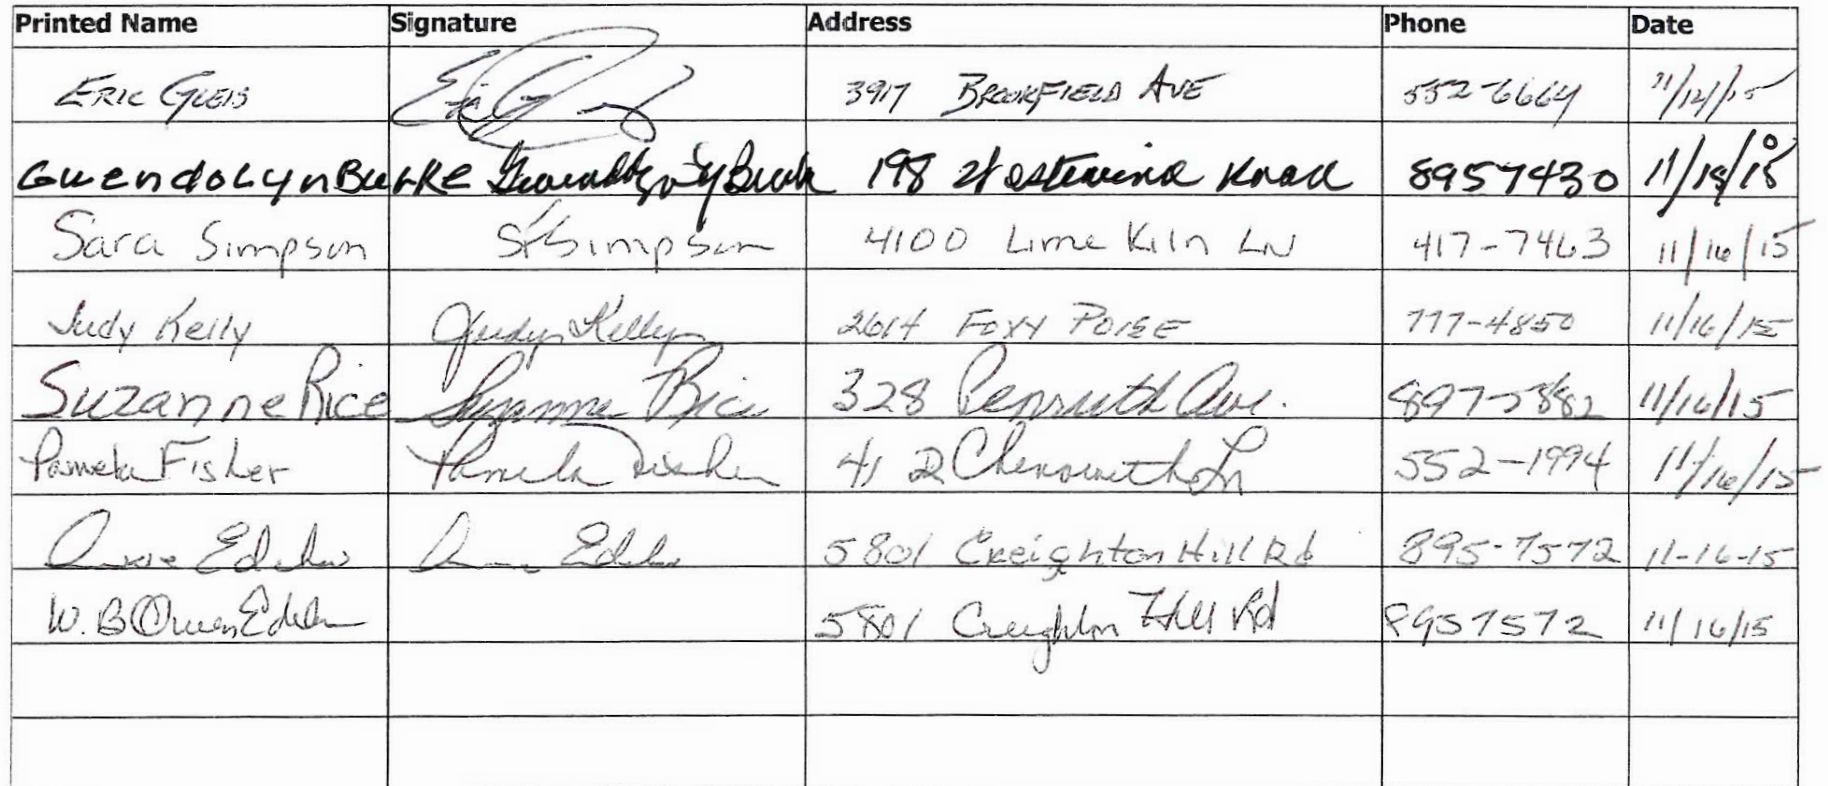 Printed Name Signature Address Phone Date
ERIC GLEIS 3917 BROOKFIELD AVE 552-6664 11/12/15
GwendoLyn BurKe 198 Westwind Knoll 8957430 11/15
Sara Simpson S Simpson 4100 Lime Kiln LN 417-7463 11/16/15
Judy Kelly Judy Kelly 2614 FOXY POISE 777-4850 11/16/15
Suzanne Rice Suzanne Rice 328 Ave. 897- 11/16/15
Pamela Fisher Pamela Fisher 412 Chenoweth Ln 552-1994 11/16/15
5801 Creighton Hill Rd 895-7572 11-16-15
W.B Owen Edelen 5801 Creighton Hill Rd 8957572 11/16/15